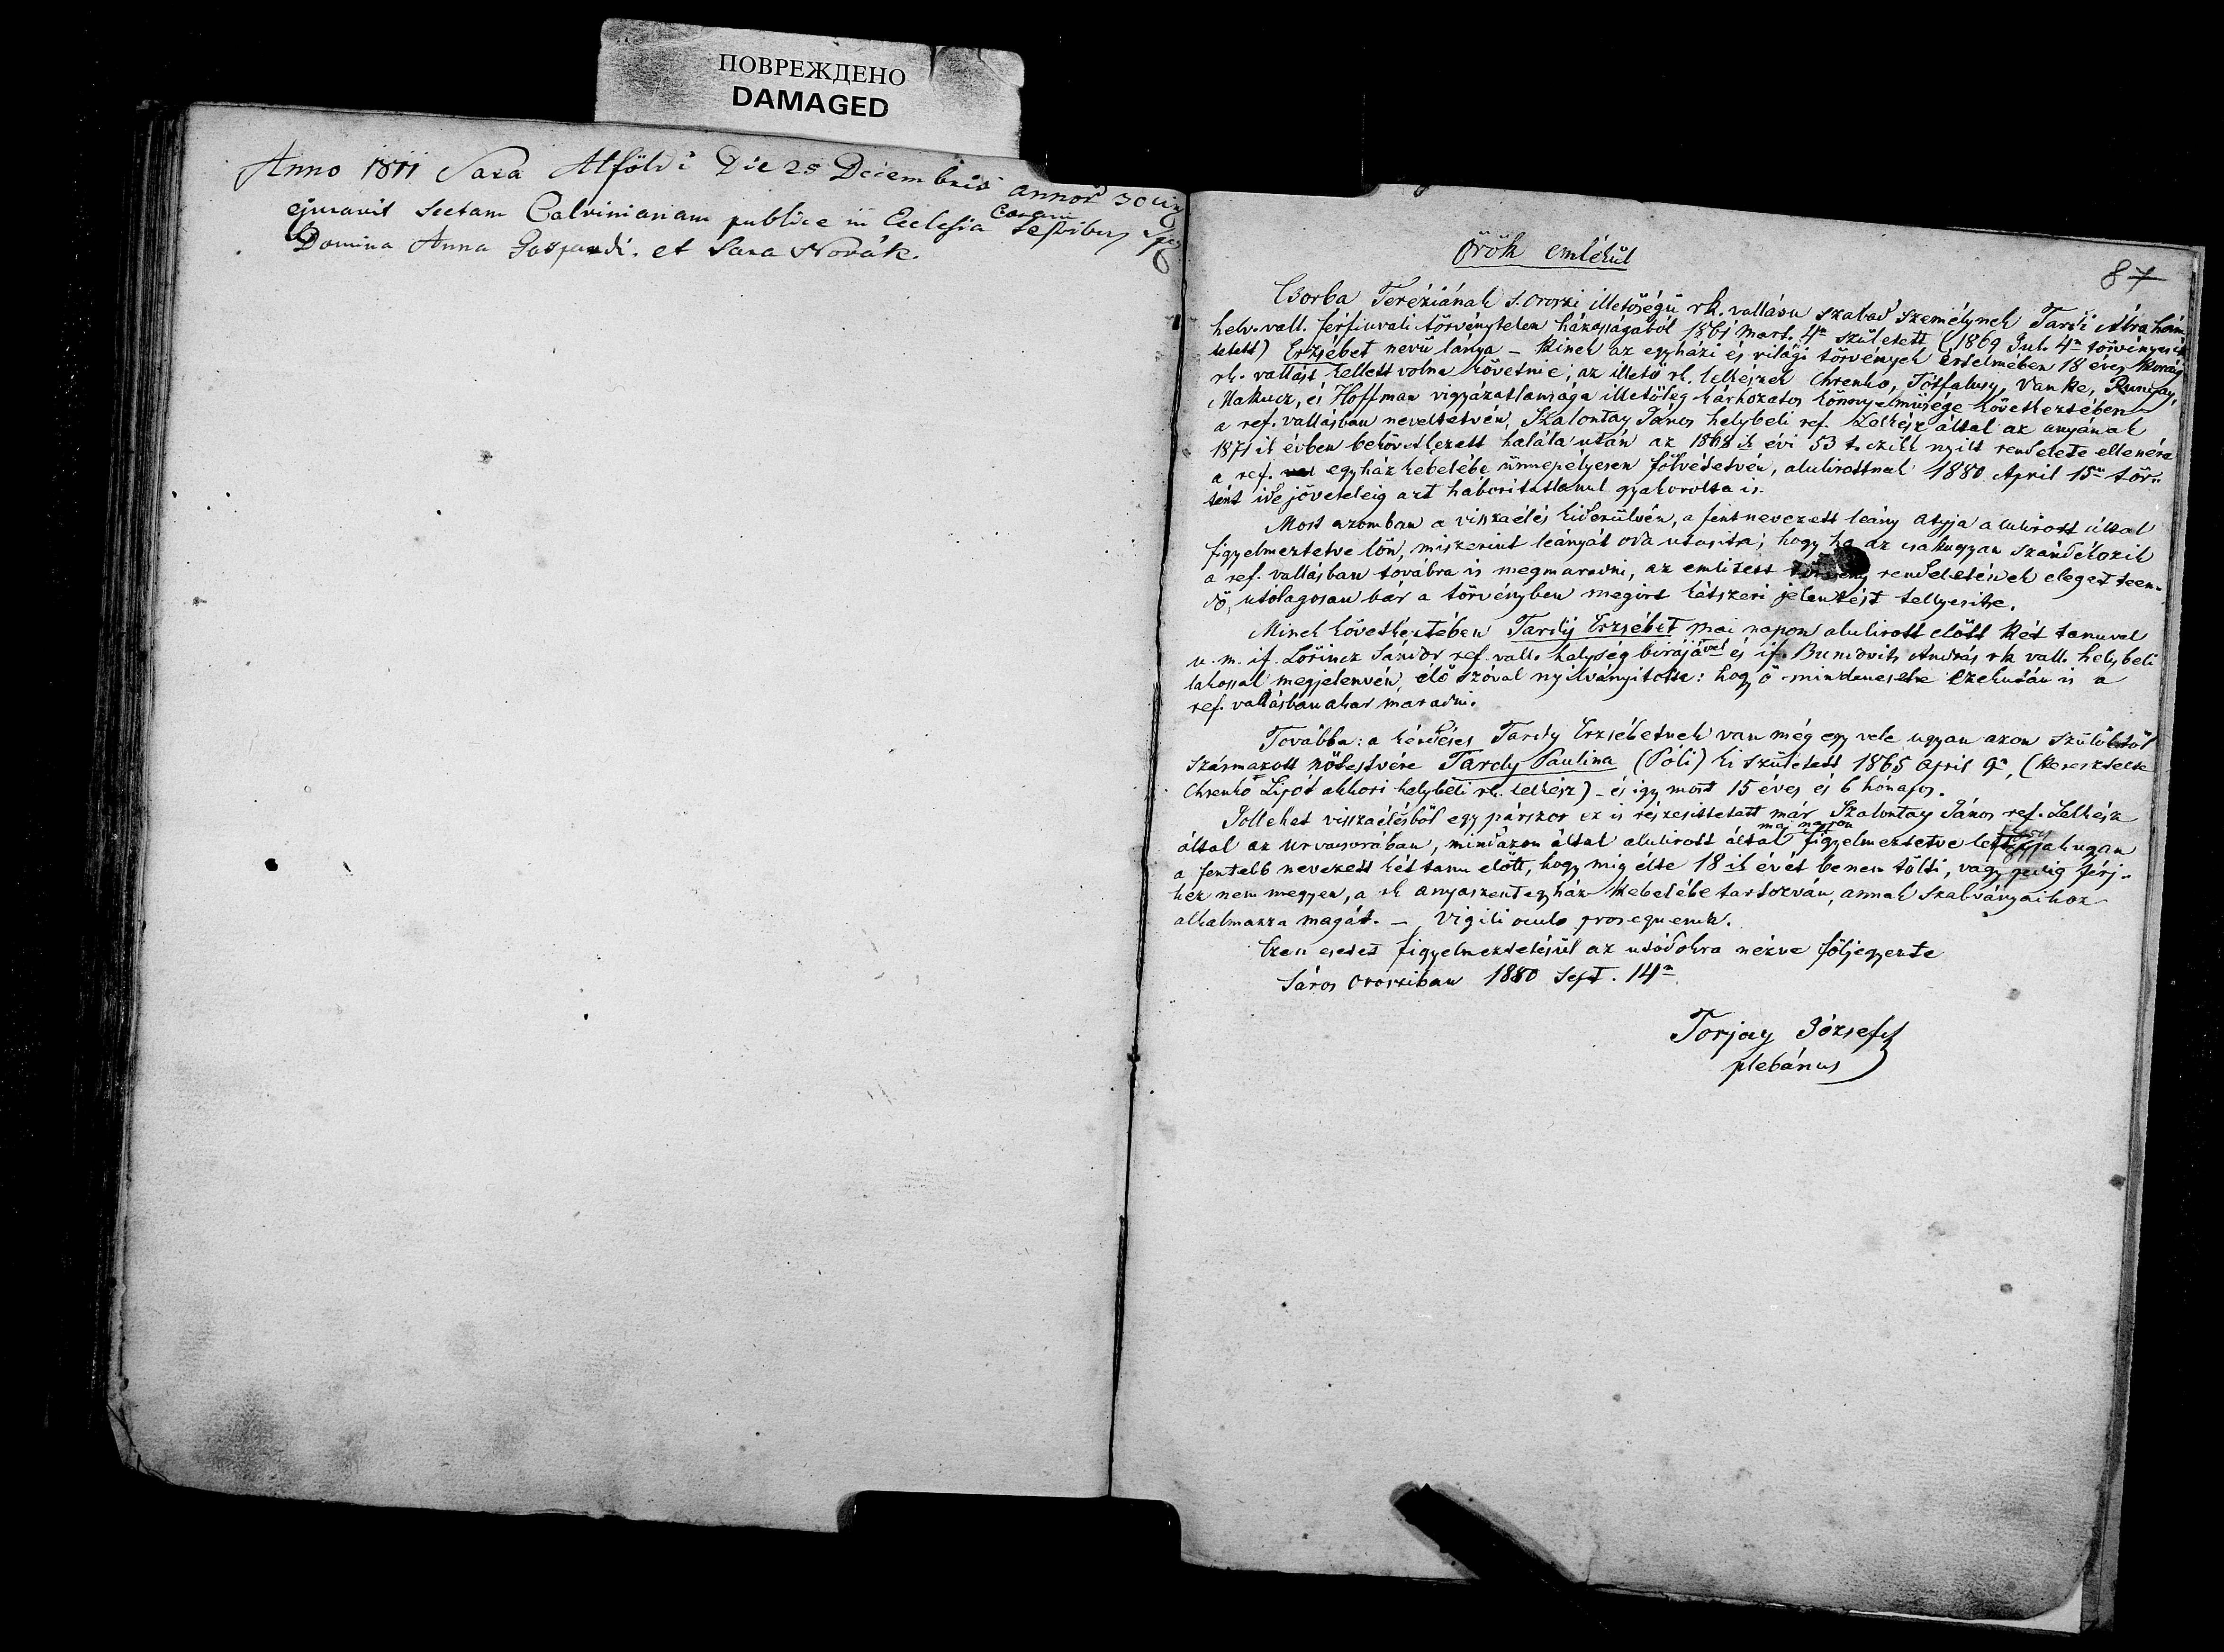 ПОВРЕЖДЕНО
DAMAGED
Anno 1811 Sara Alföldi Die 25 Decembris annor 30
ejuravit Sectam Calvinianam publice in Ecclesia coram testibus
Domina Anna Gaspardi. et Sara Novák.
87
Örök emlékül
Csorba Teréziának S. Oroszi illetőségü rk. vallásu szabad személynek Tardi Ábrahám
helv. vall. férfiuvali törvénytelen házasságából 1861 Mart. 4n született (1869 Jul. 4n törvényesit
tetett) Erzsébet nevü lánya – kinek az egyházi és világi törvények értelmében 18 éves koráig
rk. vallást kellett volna követnie; az illető rk. lelkészek Chrenko, Tótfalusy, Vanke, Runyay,
Makucz, és Hoffman vigyázatlansága illetőleg kárhozatos könnyelmüsége következtében –
a ref. vallásban neveltetvén, Szalontay János helybeli ref. Lelkész által az anyának
1871 ik évben bekövetkezett halála után az 1868 ik évi 53 t. czikk nyilt rendelete ellenére
a ref. egyház kebelébe ünnepélyesen fölvétetvén, alulirottnak 1880 April 15n tör-
tént ide jöveteleig azt háboritatlanul gyakorolta is.
Most azomban a visszaélés kiderülvén, a fent nevezett leány atyja alulirott által
figyelmeztetve lön, miszerint leányát oda utasitsa; hogy ha az csakugyan szándékozik
a ref. vallásban továbra is megmaradni, az emlitett törvény rendeletének eleget teen-
dő, utólagosan bár a törvényben megirt kétszeri jelentést tellyesitse.
Minek következtében Tardy Erzsébet mai napon alulirott előtt két tanuval
u. m. if. Lőrincz Sándor ref. vall. helység birájával és if. Bundovits András rk vall. helybeli
lakossal megjelenvén, élő szóval nyilványitotta: hogy ő mindenesetre ezekután is a
ref. vallásban akar maradni.
Továbba: a kérdéses Tardy Erzsébetnek van még egy vele ugyan azon szülőktől
származott nőtestvére Tardy Paulina (Poli) ki született 1865 April 9n, (keresztelte
Chrenko Lipót akkori helybeli rk. lelkész) – és igy most 15 éves és 6 hónapos.
Jollehet visszaélésből egy párszor ez is részesittetett már Szalontay János ref. Lelkész
által az urvacsorában, mindazon által alulirott által mai napon figyelmeztetve lett
a fentebb nevezett két tanu előtt, hogy mig élte 18 ik évét be nem tölti, vagy pedig férj-
hez nem megyen, a rk anyaszentegyház kebelébe tartozván, annak szabványaihoz
alkalmazza magát. – Vigili oculo prosequenda.
Ezen esetet figyelmeztetésül az utódokra nézve följegyezte
Sáros Orosziban 1880 Sept. 14n
Torjay József
plebánus